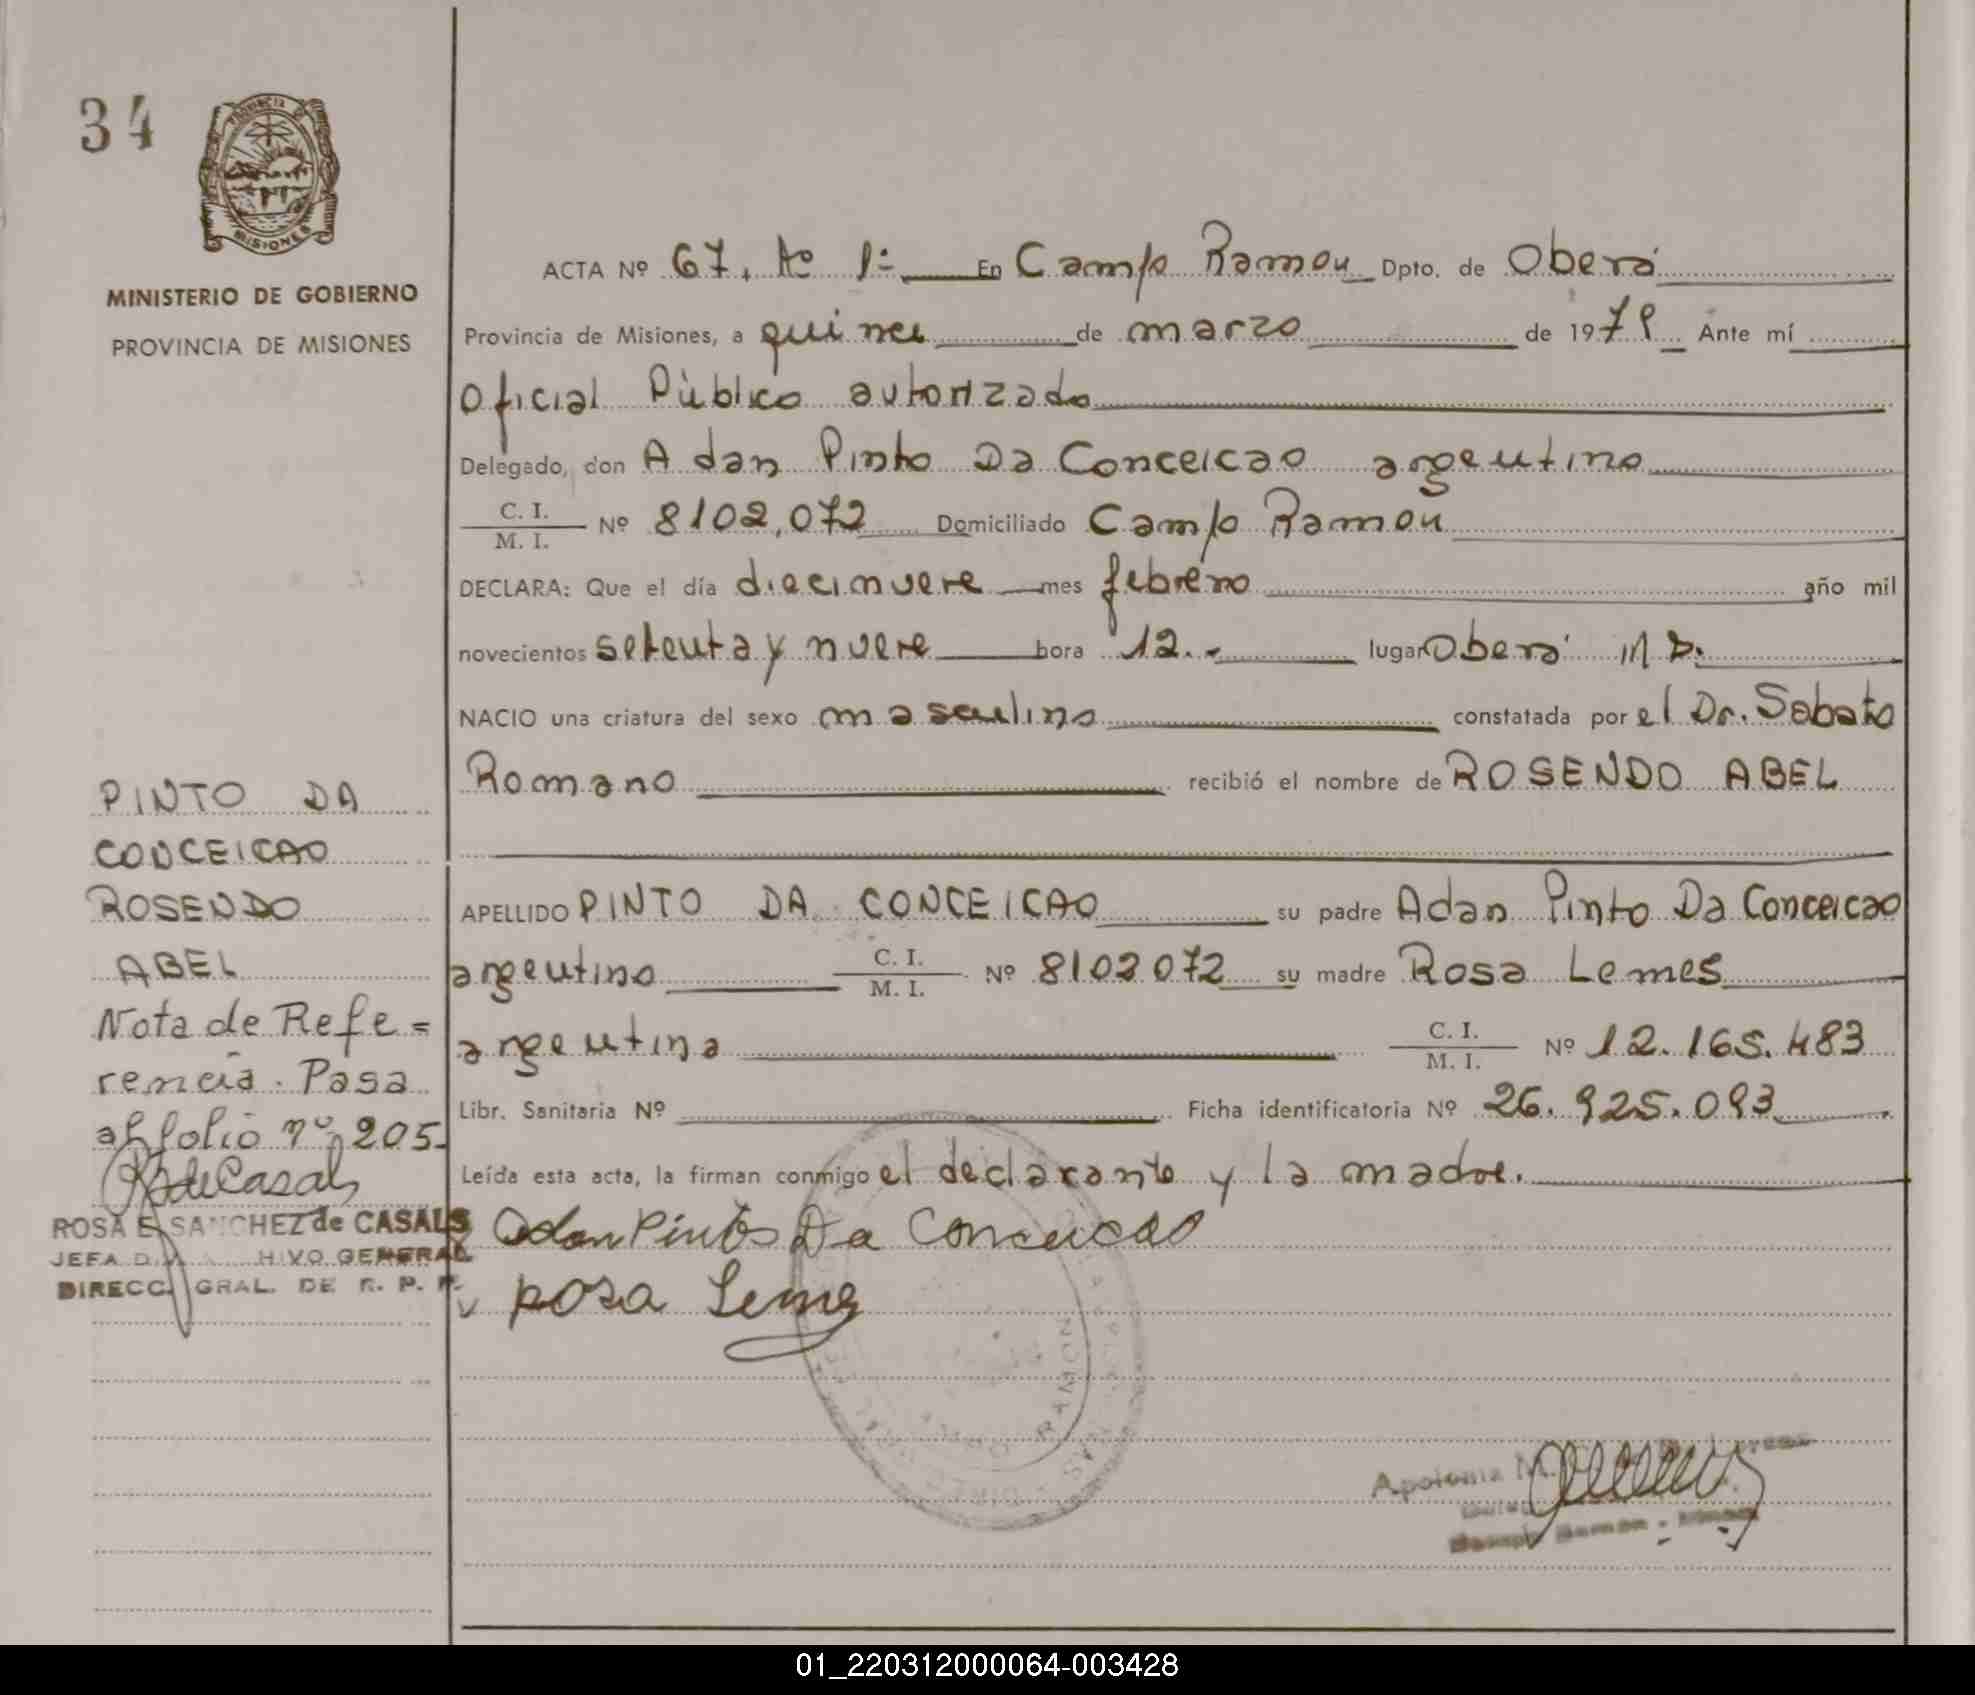 34
PROVINCIA DE
MISIONES
MINISTERIO DE GOBIERNO
PROVINCIA DE MISIONES
ACTA Nº 67. Tº 1º En Campo Ramon Dpto. de Oberá
Provincia de Misiones, a quince de marzo de 1979 Ante mí
Oficial Público autorizado
Delegado, don Adan Pinto Da Conceicao argentino
C. I.
M. I. Nº 8102,072 Domiciliado Campo Ramon
DECLARA: Que el día diecinueve mes febrero año mil
novecientos setenta y nueve hora 12.- lugar Oberá
NACIO una criatura del sexo masculino constatada por el Dr. Sabato
Romano recibió el nombre de ROSENDO ABEL
APELLIDO PINTO DA CONCEICAO su padre Adan Pinto Da Conceicao
argentino C. I.
M. I. Nº 8102072 su madre Rosa Lemes
argentina C. I.
M. I. Nº 12.165.483
Libr. Sanitaria Nº Ficha identificatoria Nº 26.925.093
Leída esta acta, la firman conmigo el declarante y la madre.
Adan Pinto Da Conceicao
Rosa Lemes
PINTO DA
CONCEICAO
ROSENDO
ABEL
Nota de Refe=
rencia. Pasa
al folio nº 205.
RSdeCasals
ROSA E. SANCHEZ de CASALS
JEFA HIVO GENERAL
DIRECC. GRAL. DE R. P. P.
CAMPO RAMON
Apolonia M.
Campo Ramon - Misiones
01_220312000064-003428